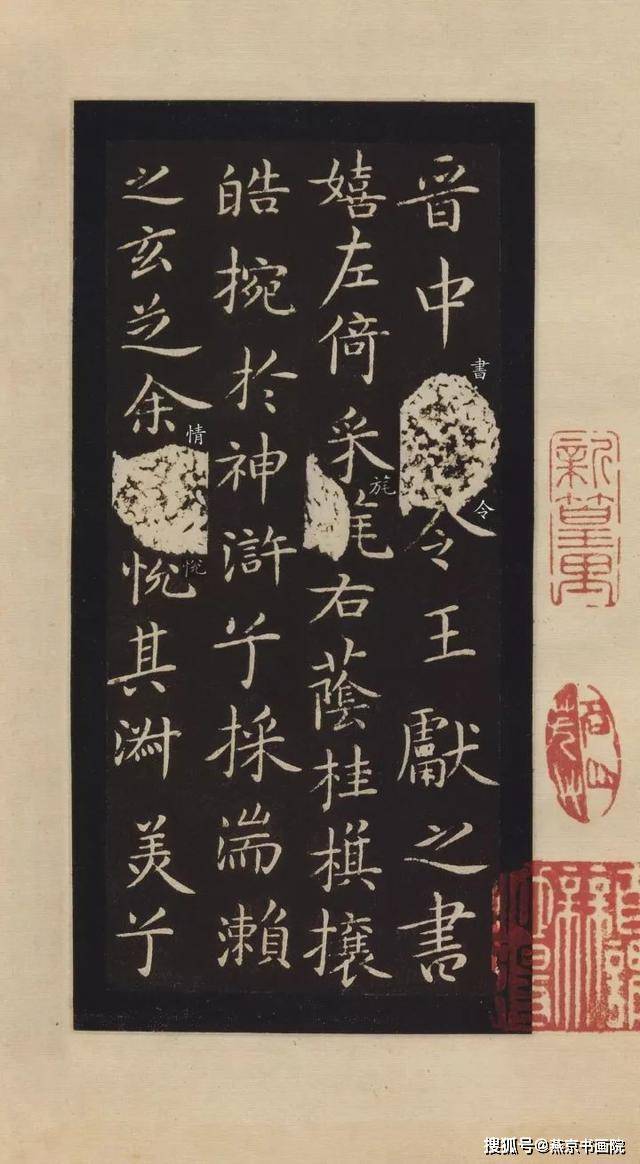 晉中書令王獻之書
嬉左倚采旄右蔭桂旗攘
皓捥於神滸兮採湍瀨
之玄芝余情悅其淑美兮
搜狐号@燕京书画院